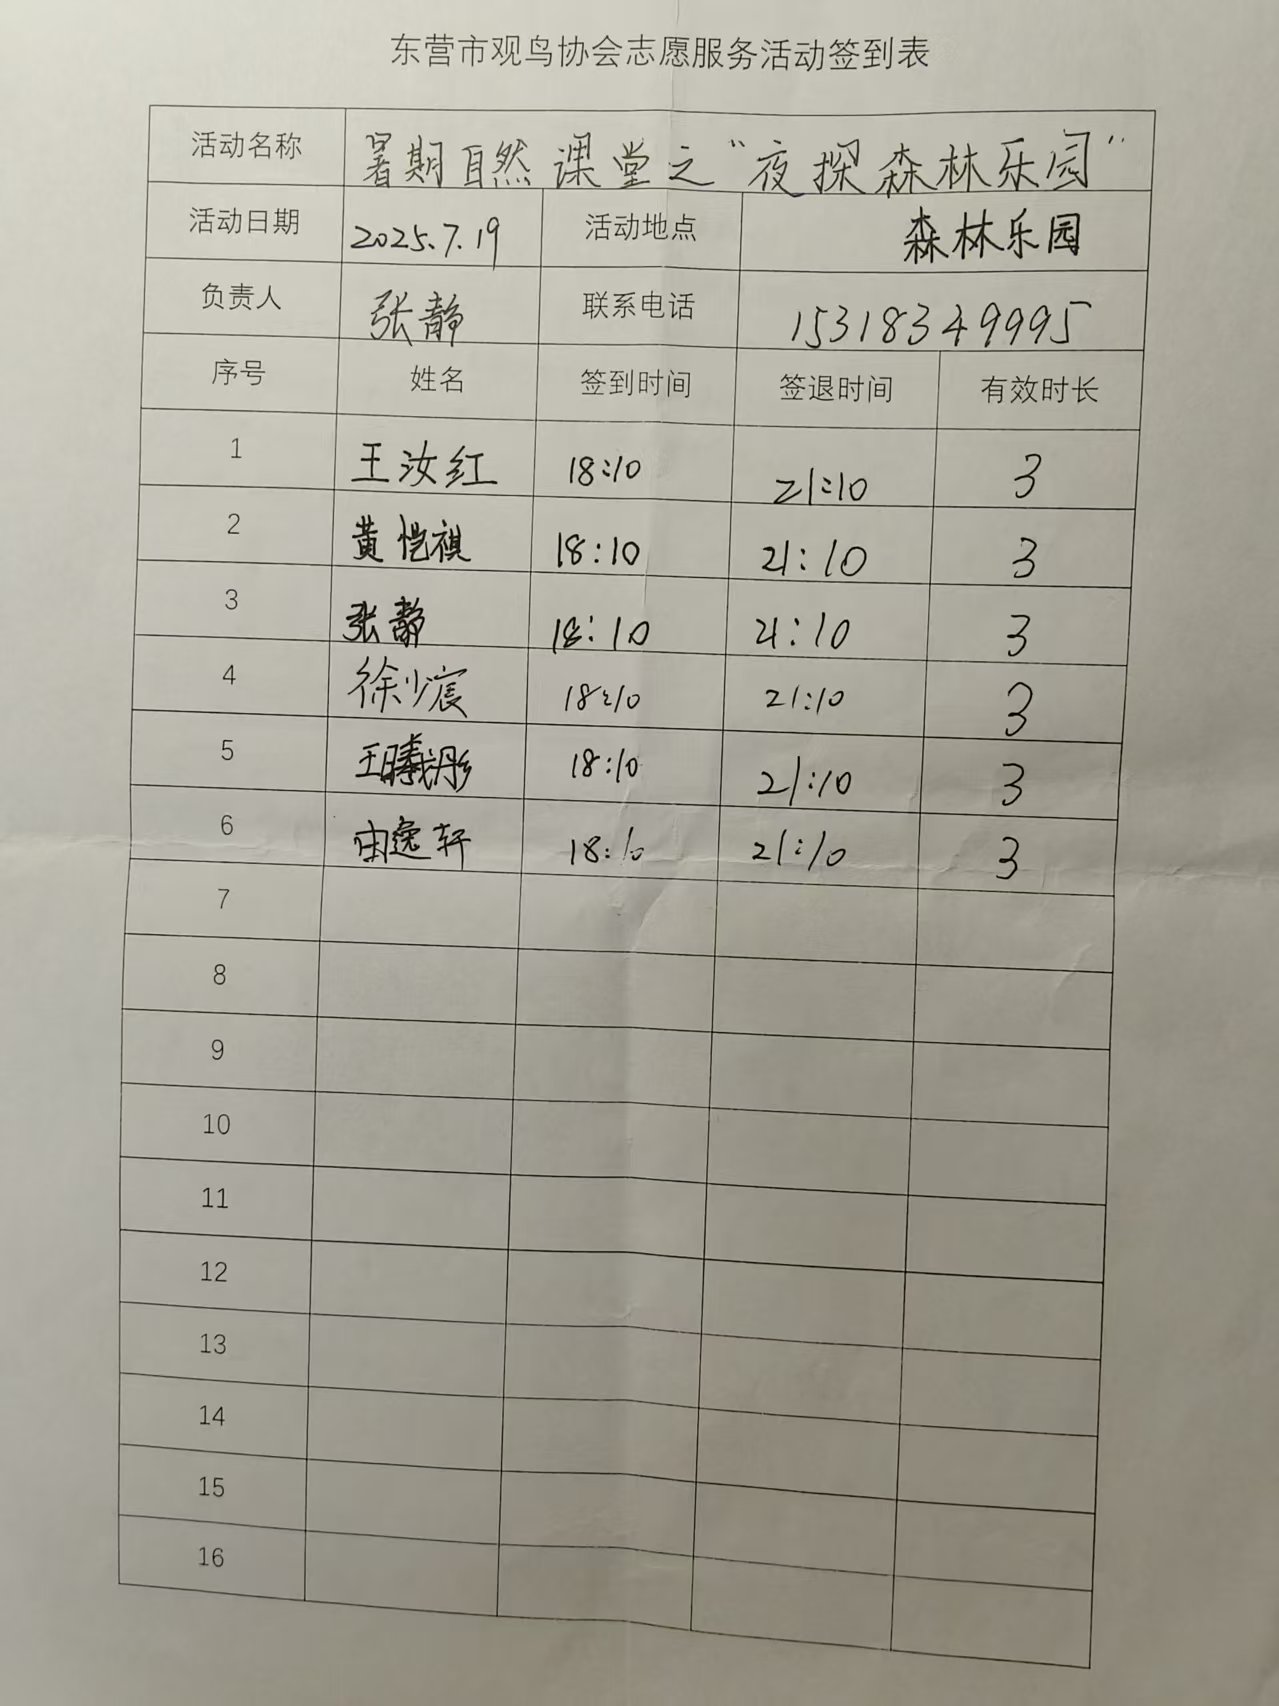 东营市观鸟协会志愿服务活动签到表
活动名称 暑期自然课堂之“夜探森林乐园”
活动日期 2025.7.19 活动地点 森林乐园
负责人 张静 联系电话 15318349995
序号 姓名 签到时间 签退时间 有效时长
1 王汝红 18:10 21:10 3
2 黄恺祺 18:10 21:10 3
3 张静 18:10 21:10 3
4 徐少宸 18:10 21:10 3
5 王曦彤 18:10 21:10 3
6 由逸轩 18:10 21:10 3
7
8
9
10
11
12
13
14
15
16